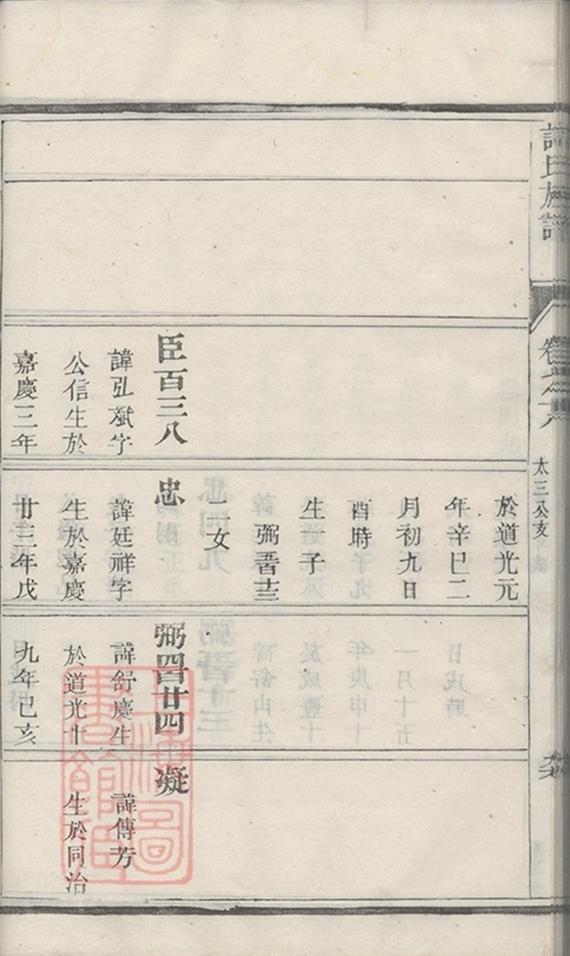 許氏族譜
卷之六
太三公支
臣百三八
諱弘斌字
公信生於
嘉慶三年
於道光元
年辛巳二
月初九日
酉時
生一子
弼晋
一女
忠
諱廷祥字
生於嘉慶
廿三年戊
弼四廿四
諱舒慶生
於道光十
九年己亥
凝
諱傳芳
生於同治
上海圖書館藏